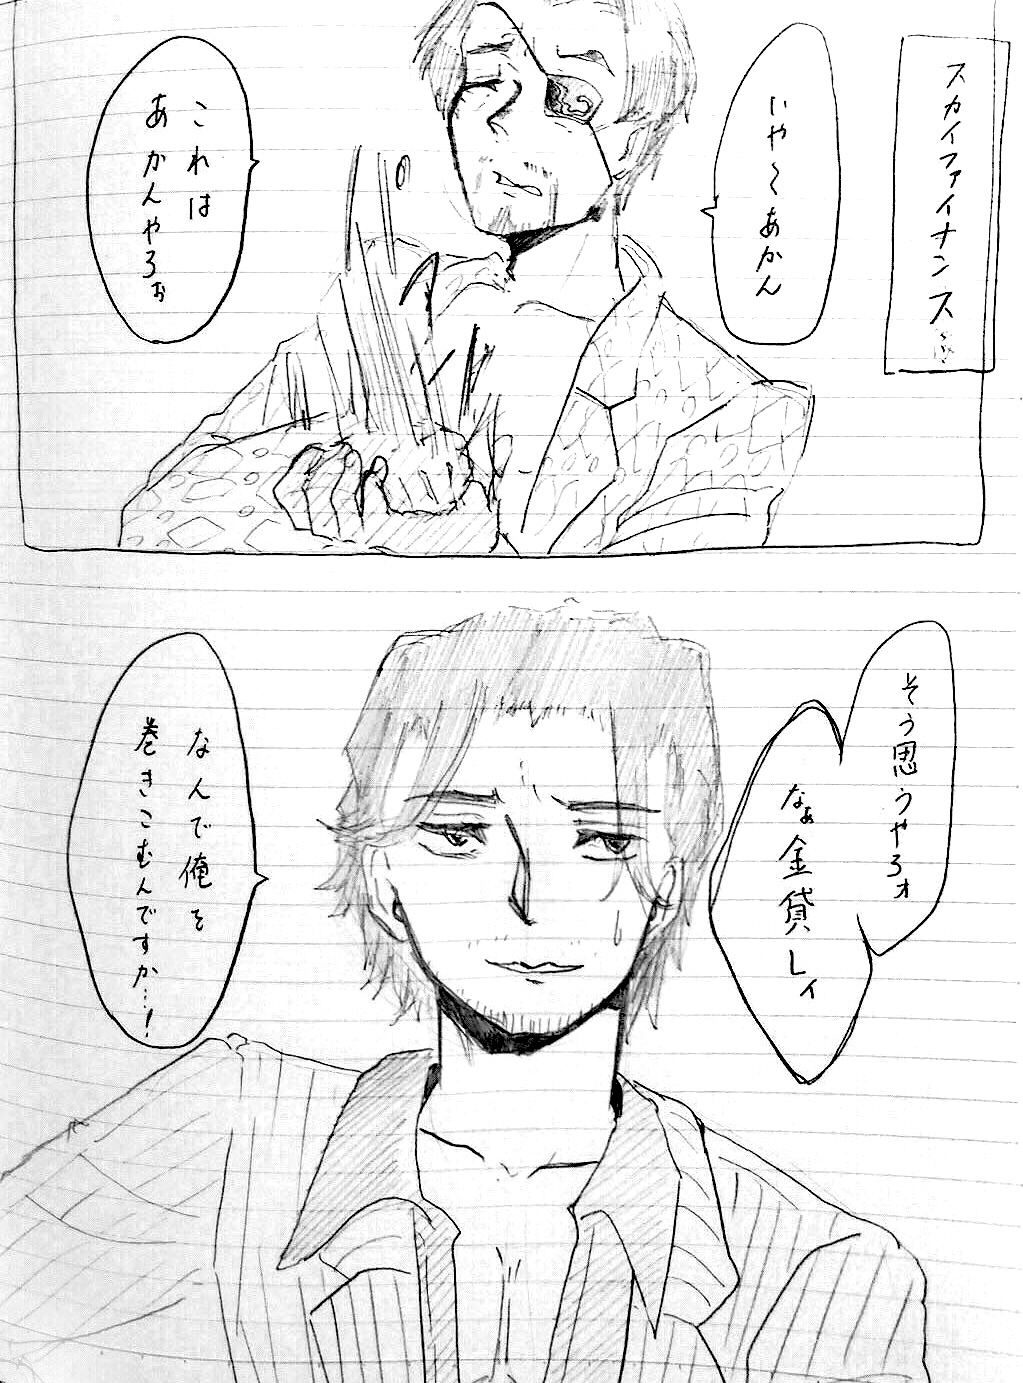 スカイファイナンス
いや〜あかん
これは
あかんやろぉ
そう思うやろォ
なぁ金貸しィ
なんで俺を
巻きこむんですか…!